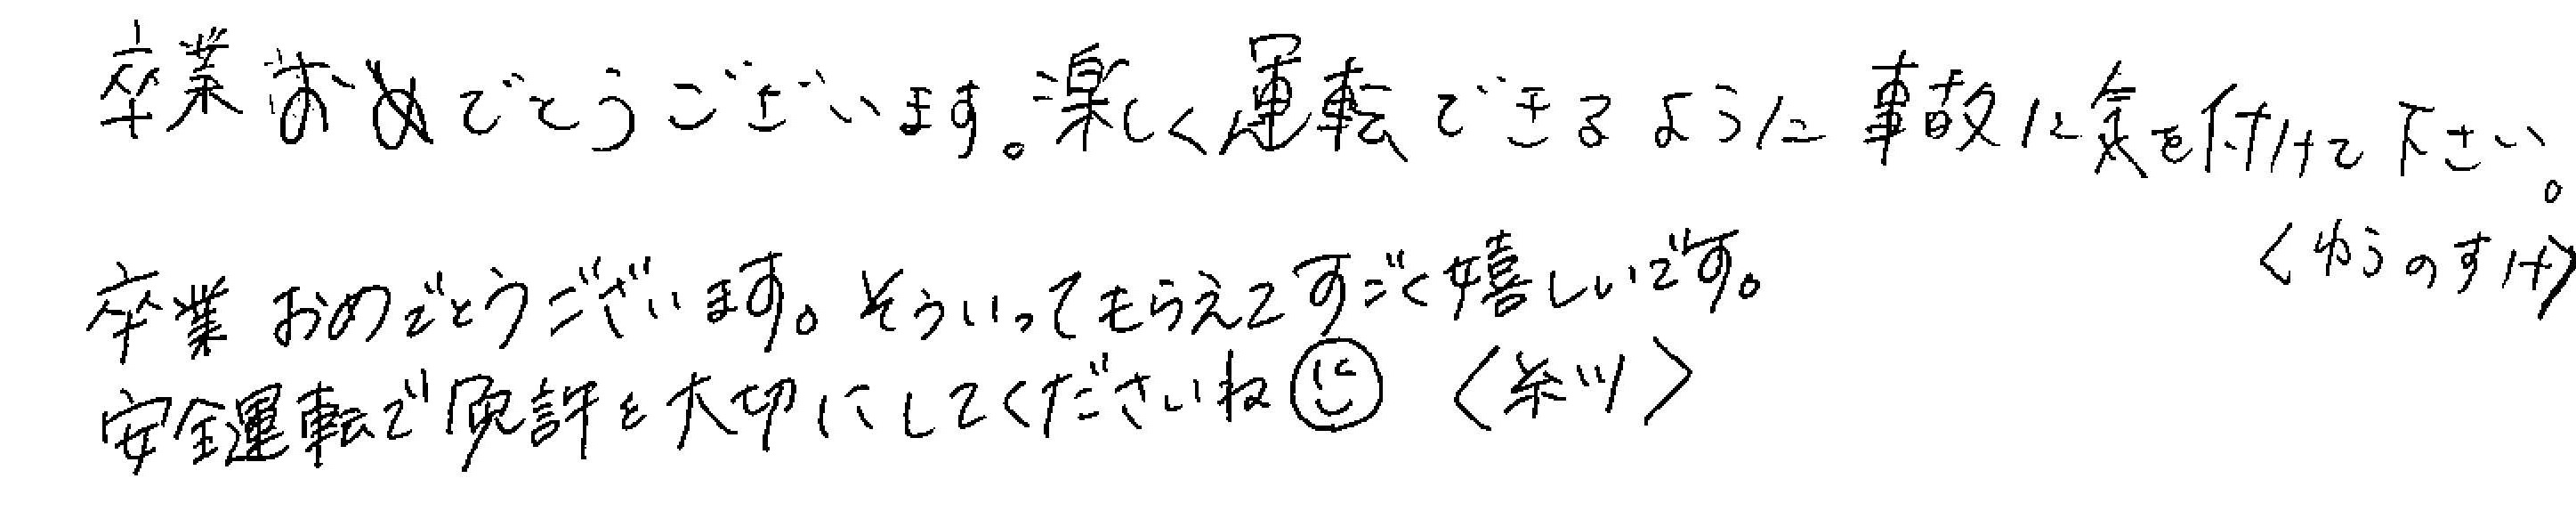 卒業おめでとうございます。楽しく運転できるように事故に気を付けて下さい。
<ゆうのすけ>
卒業おめでとうございます。そういってもらえてすごく嬉しいです。
安全運転で免許を大切にしてくださいね☺ <糸川>